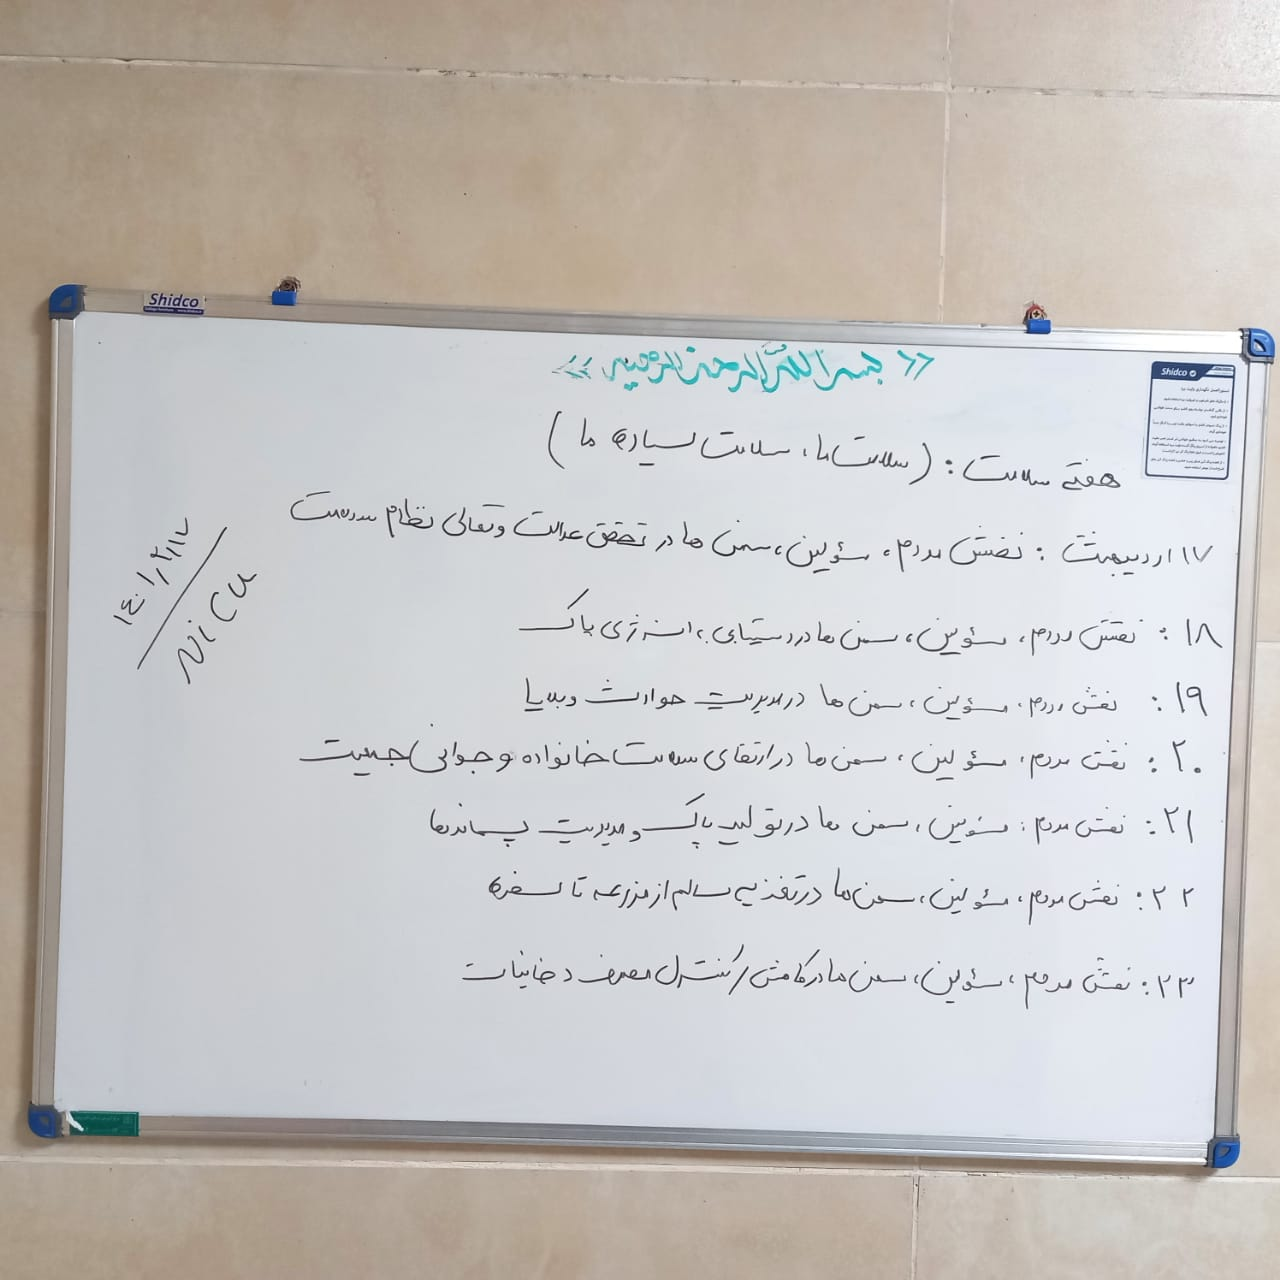 Shidco
« بسم الله الرحمن الرحیم »
Shidco
هفته سلامت : (سلامت ما، سلامت سیاره ما)
۱۷ اردیبهشت : نقش مردم، مسؤلین، سمن ها در تحقق عدالت و تعالی نظام سلامت
۱۸ : نقش مردم، مسؤلین، سمن ها در دستیابی به انرژی پاک
۱۹ : نقش مردم، مسؤلین، سمن ها در مدیریت حوادث و بلایا
۲۰ : نقش مردم، مسؤلین، سمن ها در ارتقای سلامت خانواده و جوانی جمعیت
۲۱ : نقش مردم، مسؤلین، سمن ها در تولید پاک و مدیریت پسماندها
۲۲ : نقش مردم، مسؤلین، سمن ها در تغذیه سالم از مزرعه تا سفره
۲۳ : نقش مردم، مسؤلین، سمن ها در کاهش / کنترل مصرف دخانیات
۱۴۰۱,۲,۱۷
NiCu